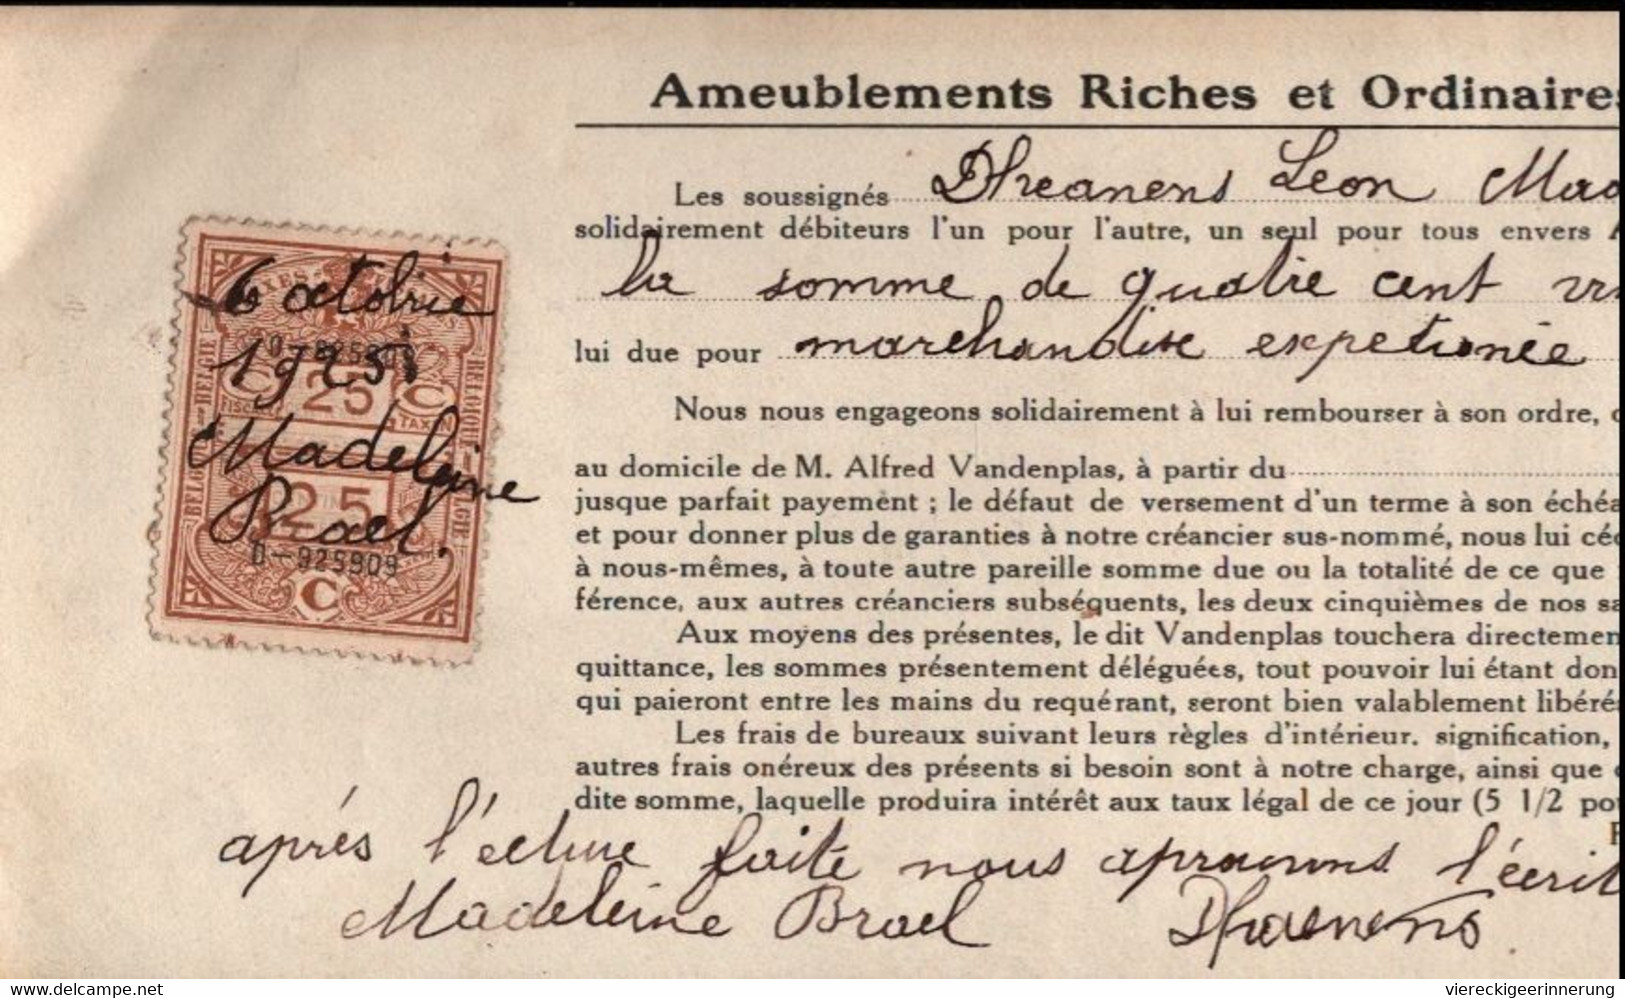 Ameublements Riches et Ordinaires
Les soussignés Dheanens Leon Mad
solidairement débiteurs l'un pour l'autre, un seul pour tous envers A
la somme de quatre cent
lui due pour marchandise expetionée
Nous nous engageons solidairement à lui rembourser à son ordre,
au domicile de M. Alfred Vandenplas, à partir du
jusque parfait payement ; le défaut de versement d'un terme à son échéa
et pour donner plus de garanties à notre créancier sus-nommé, nous lui céd
à nous-mêmes, à toute autre pareille somme due ou la totalité de ce que
férence, aux autres créanciers subséquents, les deux cinquièmes de nos sa
Aux moyens des présentes, le dit Vandenplas touchera directemen
quittance, les sommes présentement déléguées, tout pouvoir lui étant don
qui paieront entre les mains du requérant, seront bien valablement libérés
Les frais de bureaux suivant leurs règles d'intérieur. signification,
autres frais onéreux des présents si besoin sont à notre charge, ainsi que
dite somme, laquelle produira intérêt aux taux légal de ce jour (5 1/2 pou
après l'ecture faite nous aprouvons l'écrit
Madeleine Brael Dhaenens
6 octobrie
1925
Madeleine
Brael.
BELGIE
BELGIQUE
D-925909
C 25 C
FISCALE TAXEN
25
D-925909
C
www.delcampe.net
viereckigeerinnerung